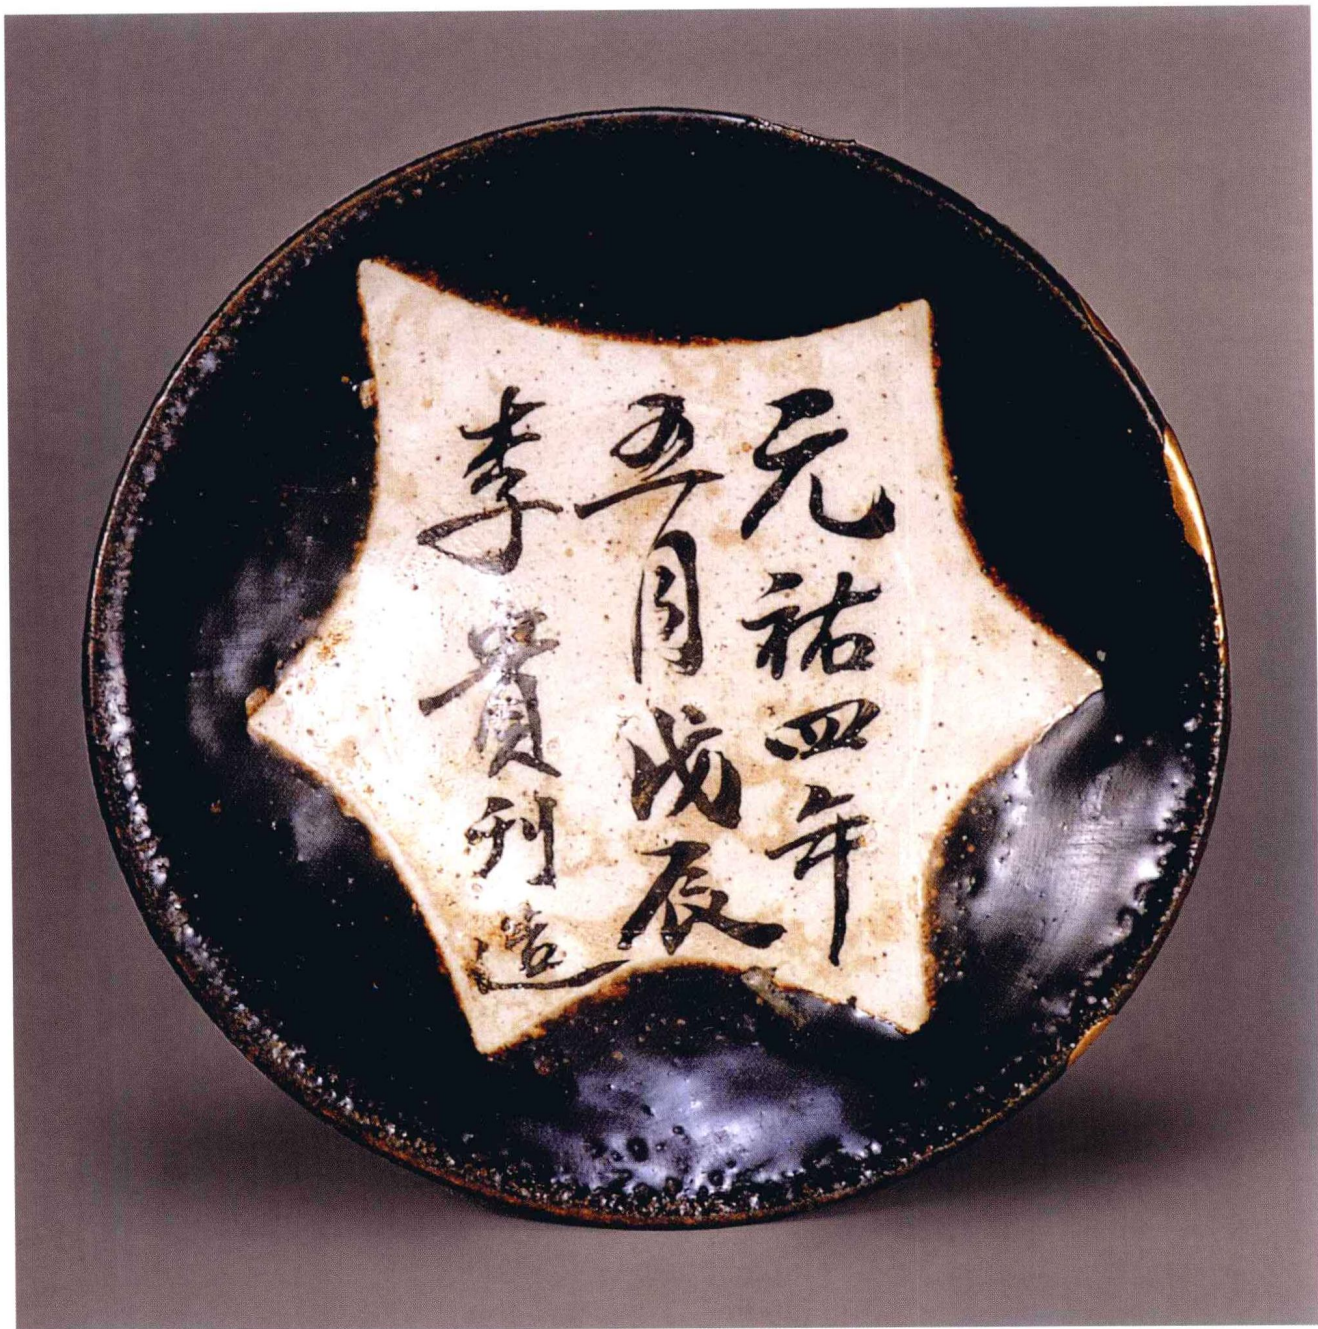 元祐四年
五月戊辰
李貴刊造